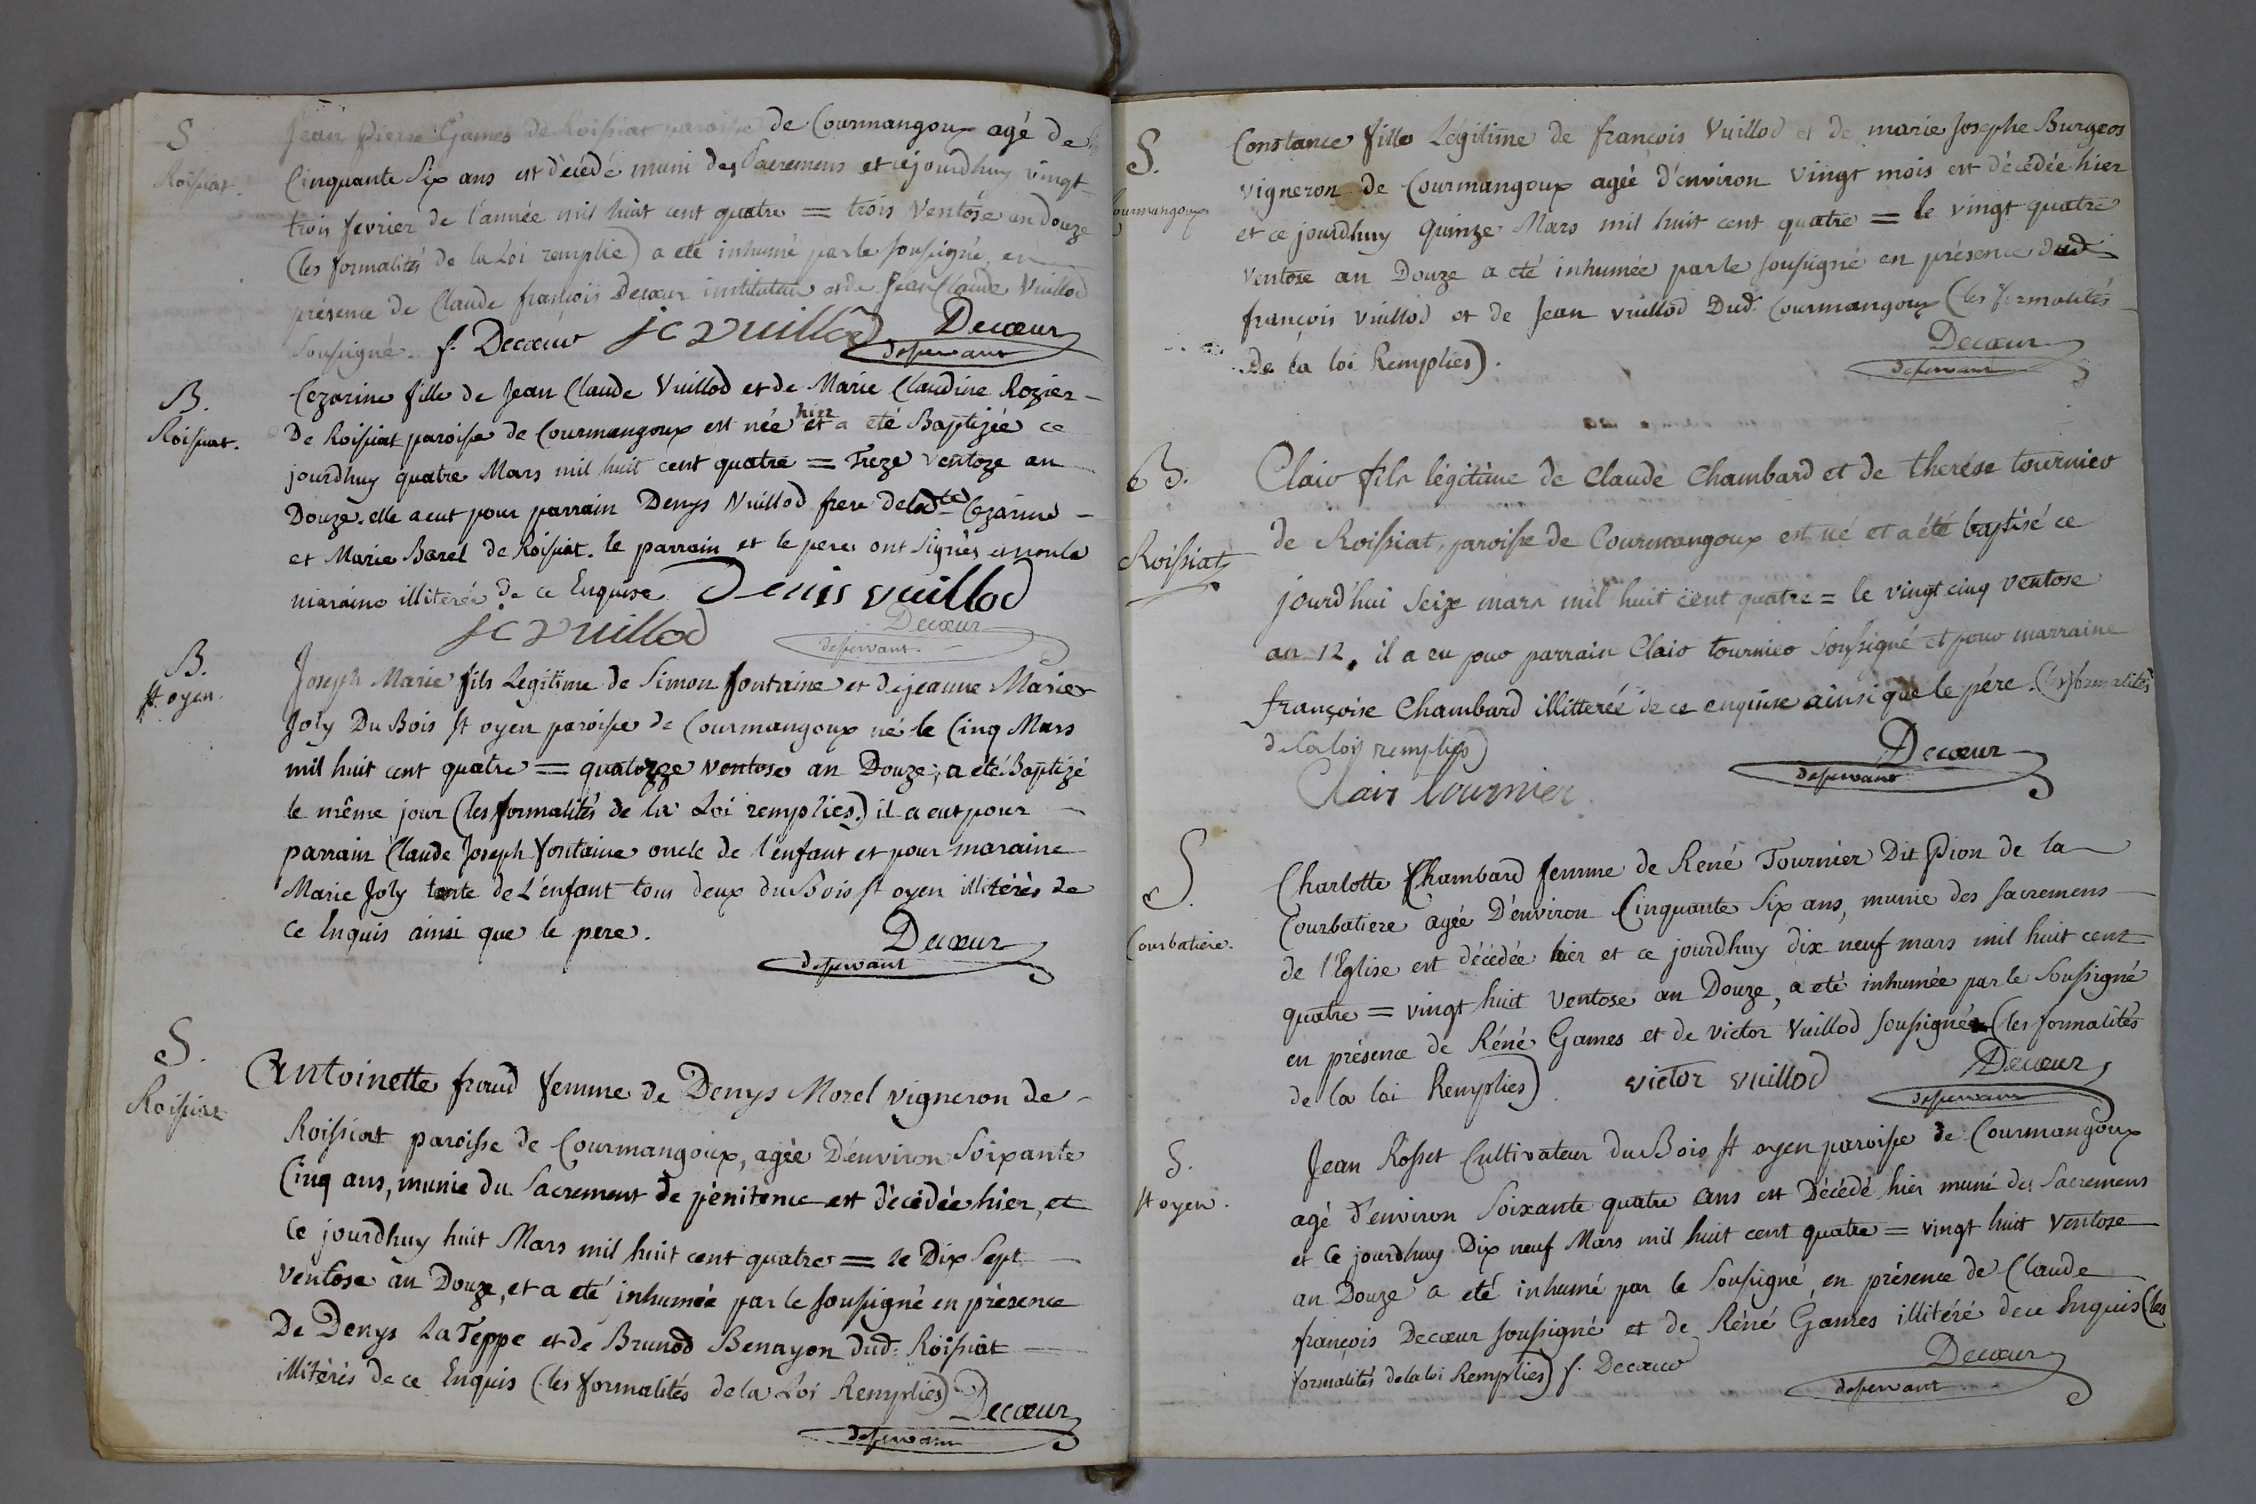 S
Roissiat.
Jean pierre Games de Roissiat paroisse de Courmangoux agé de
Cinquante Six ans est décédé muni des Sacremens et cejourdhuy vingt
trois fevrier de l'année mil huit cent quatre = trois Ventôse an douze
(les formalités de la Loi remplie) a eté inhumé par le soussigné, en
présence de Claude françois Decœur instituteur et de Jean Claude Vuillod
soussigné. f. Decœur jc vuillod Decœur
desservant
B.
Roissiat.
Cezarine fille de Jean Claude Vuillod et de Marie Claudine Rozier
De Roissiat paroisse de Courmangoux est née hier et a eté Baptizée ce
jourdhuy quatre Mars mil huit cent quatre = Treze ventoze an
Douze. elle a eut pour parrain Denys Vuillod frere de ladte Cezarine
et Marie Barel de Roissiat. le parrain et le pere ont signés et non la
maraine illiterée de ce Enquise. Denis vuillod
jc vuillod Decœur
desservant
B.
st oyen.
Joseph Marie fils Legitime de Simon fontaine et de jeanne Marie
Joly Du Bois st oyen paroisse de Courmangoux né le Cinq Mars
mil huit cent quatre = quatorze ventose an Douze, a eté Baptizé
le même jour (les formalités de la Loi remplies) il a eut pour
parrain Claude Joseph fontaine oncle de l'enfant et pour maraine
Marie Joly tante de L'enfant tous deux du Bois st oyen illitérés de
Ce Enquis ainsi que le pere. Decœur
desservant
S.
Roissiat
Antoinette fraud femme de Denys Morel vigneron de
Roissiat paroisse de Courmangoux, agée D'environ Soixante
Cinq ans, munie du Sacrement de pénitence est décédée hier, et
Ce jourdhuy huit Mars mil huit cent quatre = le Dix Sept
Ventose an Douze, et a eté inhumée par le soussigné en présence
De Denys La Teppe et de Brunod Benayon dud. Roissiat
illitérés de ce Enquis (les formalités de la Loi Remplies) Decœur
desservant
S.
Courmangoux
Constance fille Légitime de françois Vuillod et de marie Josephe Burgeos
vigneron de Courmangoux agée d'environ vingt mois est décédée hier
et ce jourdhuy Quinze Mars mil huit cent quatre = le vingt quatre
Ventose an Douze a eté inhumée par le soussigné en présence dud
françois vuillod et de Jean vuillod Dud. Courmangoux (les formalités
De la loi Remplies). Decœur
desservant
B.
Roissiat
Clair fils légitime de Claude Chambard et de therése tournier
de Roissiat, paroisse de Courmangoux est né et a été baptisé ce
jourd'hui Seize mars mil huit cent quatre = le vingt cinq ventose
an 12. il a eu pour parrain Clair tournier soussigné et pour marraine
françoise Chambard illitterée de ce enquise ainsi que le pére. (les formalités
de la loy remplies) Decœur
desservant
Clair tournier
S.
Courbatiere.
Charlotte Chambard femme de René Tournier Dit Pion de la
Courbatiere agée D'environ Cinquante Six ans, munie des sacremens
de l'Eglise est décédée hier et ce jourdhuy dix neuf mars mil huit cent
quatre = vingt huit Ventose an Douze, a eté inhumée par le Soussigné
en présence de Réné Games et de victor Vuillod soussigné (les formalités
de la loi Remplies). victor vuillod Decœur
desservant
S.
st oyen.
Jean Rosset Cultivateur du Bois st oyen paroisse de Courmangoux
agé d'environ Soixante quatre ans est Décédé hier muni des Sacremens
et Ce jourdhuy Dix neuf Mars mil huit cent quatre = vingt huit Ventose
an Douze a eté inhumé par le Soussigné, en présence de Claude
françois Decœur soussigné et de Réné Games illitéré de ce Enquis (les
formalités de la loi Remplies) f. Decœur Decœur
desservant